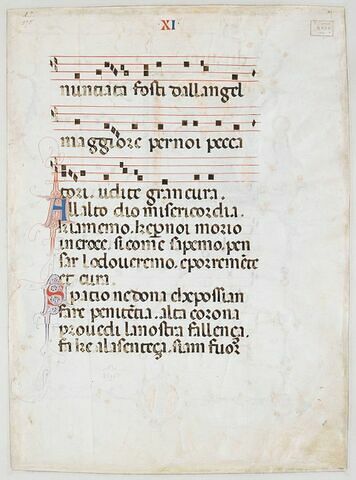 XI
nunciata fosti dallangel
maggiore per noi pecca
tori. udite gran cura.
Allalto dio misericordia.
kiamemo. ke per noi morio
in croce. si come sapemo. pen
sar lo dovremo. e por remēte
et cura.
Spatio ne dona che possian
fare penitētia. alta corona
provedi la nostra fallença.
fa ke ala sentēça. siam fuor